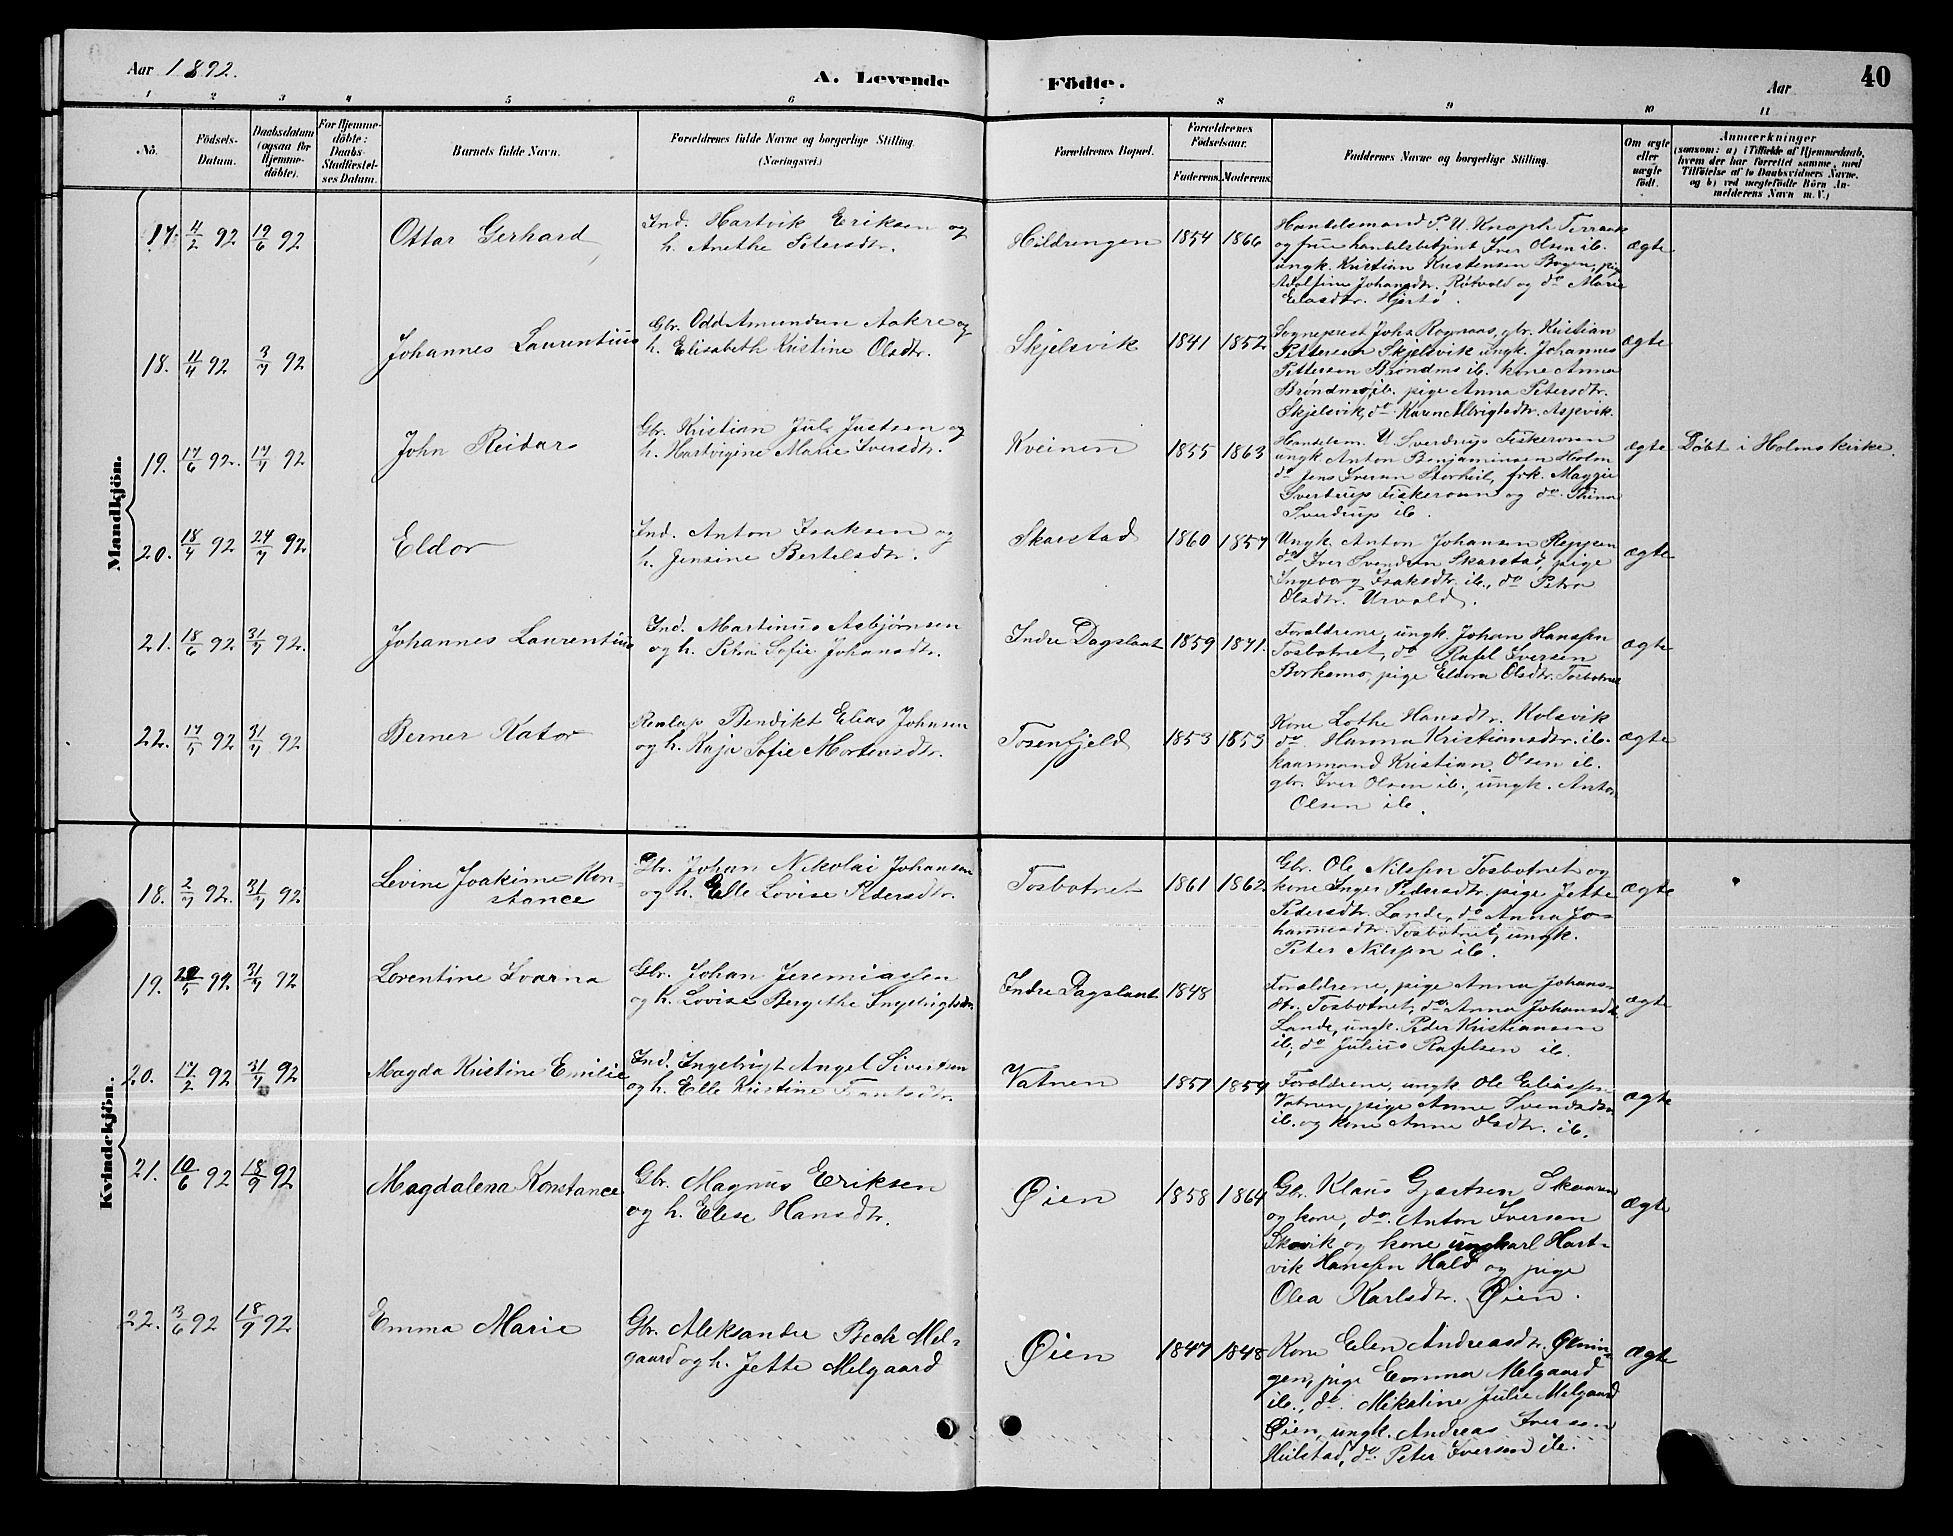 Aar 1892.
A. Levende Födte.
Aar
40
1 2 3 4 5 6 7 8 9 10 11
No.
Födsels-Datum.
Daabsdatum (ogsaa for Hjemmedöbte).
For Hjemmedöbte: Daabs-Stadfæstelses Datum.
Barnets fulde Navn.
Forældrenes fulde Navne og borgerlige Stilling. (Næringsvei.)
Forældrenes Bopæl.
Forældrenes Födselsaar.
Faderens. Moderens.
Faddernes Navne og borgerlige Stilling.
Om ægte eller uægte födt.
Anmærkninger
(saasom: a) i Tilfælde af Hjemmedaab, hvem der har forrettet samme, med Tilföielse af to Daabsvidners Navne. og b) ved uægtefödte Börn Anmelderens Navn m. V.)
Mandkjön.
17. 4/2 92 19/6 92
Ottar Gerhard
Ind. Hartvik Eriksen og
h. Anethe Petersdtr.
Hildringen 1854 1866
Handelsmand P. U. Knoph Terraak
og frue handelsbetjent Iver Olsen ib.
ungk. Kristian Kristensen Bogen, pig
Adolfine Johansdtr. Røtvold og do Marie
Eliasdtr. Hjortø.
ægte
18. 4/4 92 3/7 92
Johannes Laurentius
Gbr. Odd Amundsen Aakre og
h. Elisabeth Kristine Olsdtr.
Skjelsvik 1841 1852
Sogneprest Johs Rognaas, gbr. Kristian
Pettersen Skjelsvik ungk. Johannes
Pettersen Brøndmo ib. kone Anna
Brøndmo, ib. pige Anna Petersdtr.
Skjelsvik, do Karen Albrigtsdtr. Aspevik.
ægte
19. 17/6 92. 17/7 92
John Reidar
Gbr. Kristian Juls Justsen og
h. Hartvigine Marie Iversdtr.
Kveinen 1855 1863
Handelsm. U. Sverdrup Fiskerosen
ungk Anton Benjaminsen Holm
do Jens Iversen Storheil, frk. Maggie
Sverdrup Fiskerosen og do Thina
Sverdrup ib.
ægte
Døbt i Holms kirke.
20. 18/4 92 24/7 92.
Eldor
Ind. Anton Isaksen og
h. Jensine Bertelsdtr.
Skarstad 1860 1857
Ungk. Anton Johansen Reppen
do Iver Svendsen Skarstad, pige
Ingeborg Isaksdtr. ib., do Petra
Olsdtr. Urvold.
ægte
21. 18/6 92 31/7 92.
Johannes Laurentius
Ind. Martinus Asbjørnsen
og h. Petra Sofie Johansdtr.
Indre Dagslaat 1859 1871.
Forældrene, ungk. Johan Hanssen
Tosbotnet, do Rafel Iversen
Borkamo, pige Eldora Olsdtr. Tosbotnet
ægte
22. 17/5 92 31/7 92
Berner Kator
Renlap Bendikt Elias Johnsen
og h. Kaja Sofie Mortensdtr.
Tosenfjeld 1853 1853
Kone Lothe Hansdtr. Kolsvik
do Hanna Kristiansdtr. ib.
kaarmand Kristian Olsen ib.
gbr. Iver Olsen ib., ungk. Anton
Olsen ib.
ægte
Kvindekjön.
18. 2/7 92. 31/7 92
Levine Joakime Kon-
stance
Gbr. Johan Nikolai Johansen
og h. Elle Lovise Pedersdtr.
Tosbotnet 1861 1862.
Gbr. Ole Nilssen Tosbotnet og
kone Inger Pedersdtr. pige Jette
Pedersdtr. Lande, do Anna Jo-
hannesdtr. Tosbotnet, ungk.
Peter Nilssen ib.
ægte
19. 20/5 92. 31/7 92
Lorentine Ivarna
Gbr. Johan Jeremiassen
og h. Lovise Bergithe Ingebrigtsdtr.
Indre Dagslaat 1848
Forældrene, pige Anna Johans-
dtr. Tosbotnet, do Anna Johansdtr.
Lande, ungk. Peder Kristiansen
ib., do Julius Rafelsen ib.
ægte
20. 17/2 92 31/7 92
Magda Kristine Emilie
Ind. Ingebrigt Angel Sivertsen
og h. Elle Kristine Frantsdtr.
Vatnen 1857 1859
Forældrene, ungk. Ole Eliassen
Vatnen, pige Anne Svendsdtr.
ib. og kone Anne Olsdtr. ib.
ægte
21. 10/6 92 18/9 92
Magdalena Konstance
Gbr. Magnus Eriksen
og h. Elise Hansdtr.
Øien 1858 1864
Gbr. Klaus Gjertsen Skaaren
og kone, do. Anton Iversen
Skovik og kone ungkarl Hart-
vik Hanssen Hald og pige
Olea Karlsdtr. Øien.
ægte
22. 3/6 92 18/9 92
Emma Marie
Gbr. Aleksander Bech Mel-
gaard og h. Jette Melgaard
Øien 1847 1848
Kone Elen Andreasdtr.
gen, pige Emma Melgaard
ib., do. Mikaline Julie Melgaard
Øien, ungk. Andreas Iversen
Heilstad, do. Peter Iversen ib.
ægte